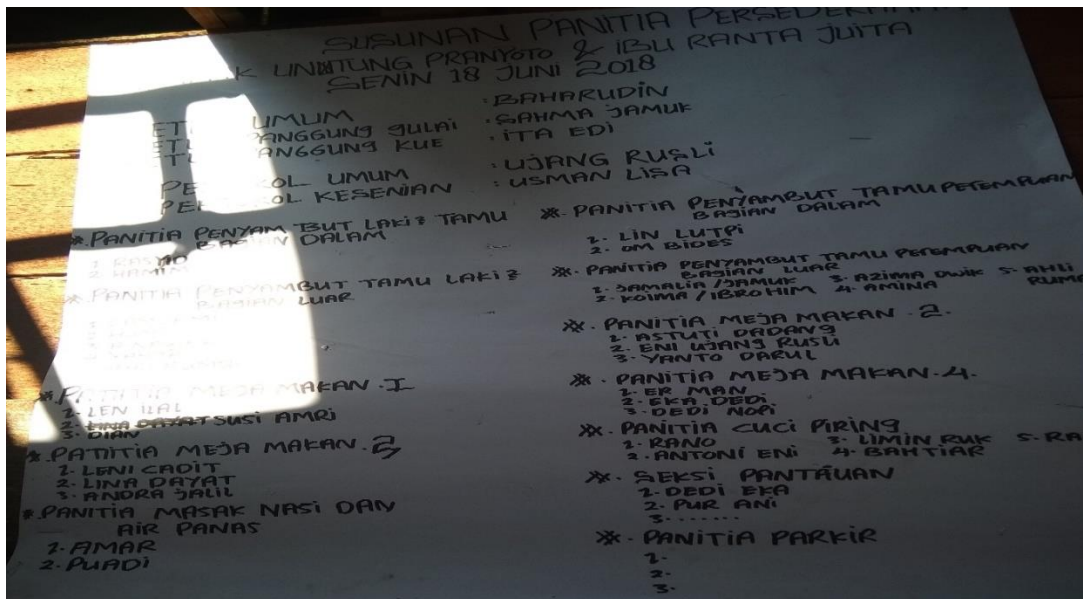 SUSUNAN PANITIA
UNTUNG PRANYOTO & IBU RANTA JUITA
SENIN 18 JUNI 2018
UMUM : BAHARUDIN
PANGGUNG GULAI : SAHMA JAMUK
ANGGUNG KUE : ITA EDI
UMUM : UJANG RUSLI
KESENIAN : USMAN LISA
*.PANITIA PENYAMBUT LAKI2 TAMU
BAGIAN DALAM
1. RASYID
2. HAMIM
*.PANITIA PENYAMBUT TAMU LAKI2
BAGIAN LUAR
*.PANITIA MEJA MAKAN.I
1. LEN ILAL
2. SUSI AMRI
3. DIAN
*.PATITIA MEJA MAKAN.3
1. LENI CADIT
2. LINA DAYAT
3. ANDRA JALIL
*.PANITIA MASAK NASI DAN
AIR PANAS
1. AMAR
2. PUADI
*. PANITIA PENYAMBUT TAMU PEREMPUAN
BAGIAN DALAM
1. LIN LUTPI
2. OM BIDES
*. PANITIA PENYAMBUT TAMU PEREMPUAN
BAGIAN LUAR
1. JAMALIA/JAMUK 3. AZIMA DWIK 5. AHLI
2. KOIMA/IBROHIM 4. AMINA
*. PANITIA MEJA MAKAN.2.
1. ASTUTI DADANG
2. ENI UJANG RUSLI
3. YANTO DARUL
*. PANITIA MEJA MAKAN.4.
1. ER MAN
2. EKA DEDI
3. DEDI NOPI
*. PANITIA CUCI PIRING
1. RANO 3. LIMIN RUK 5. RA
2. ANTONI ENI 4. BAHTIAR
*. SEKSI PANTAUAN
1. DEDI EKA
2. PUR ANI
3. .......
*. PANITIA PARKIR
1.
2.
3.